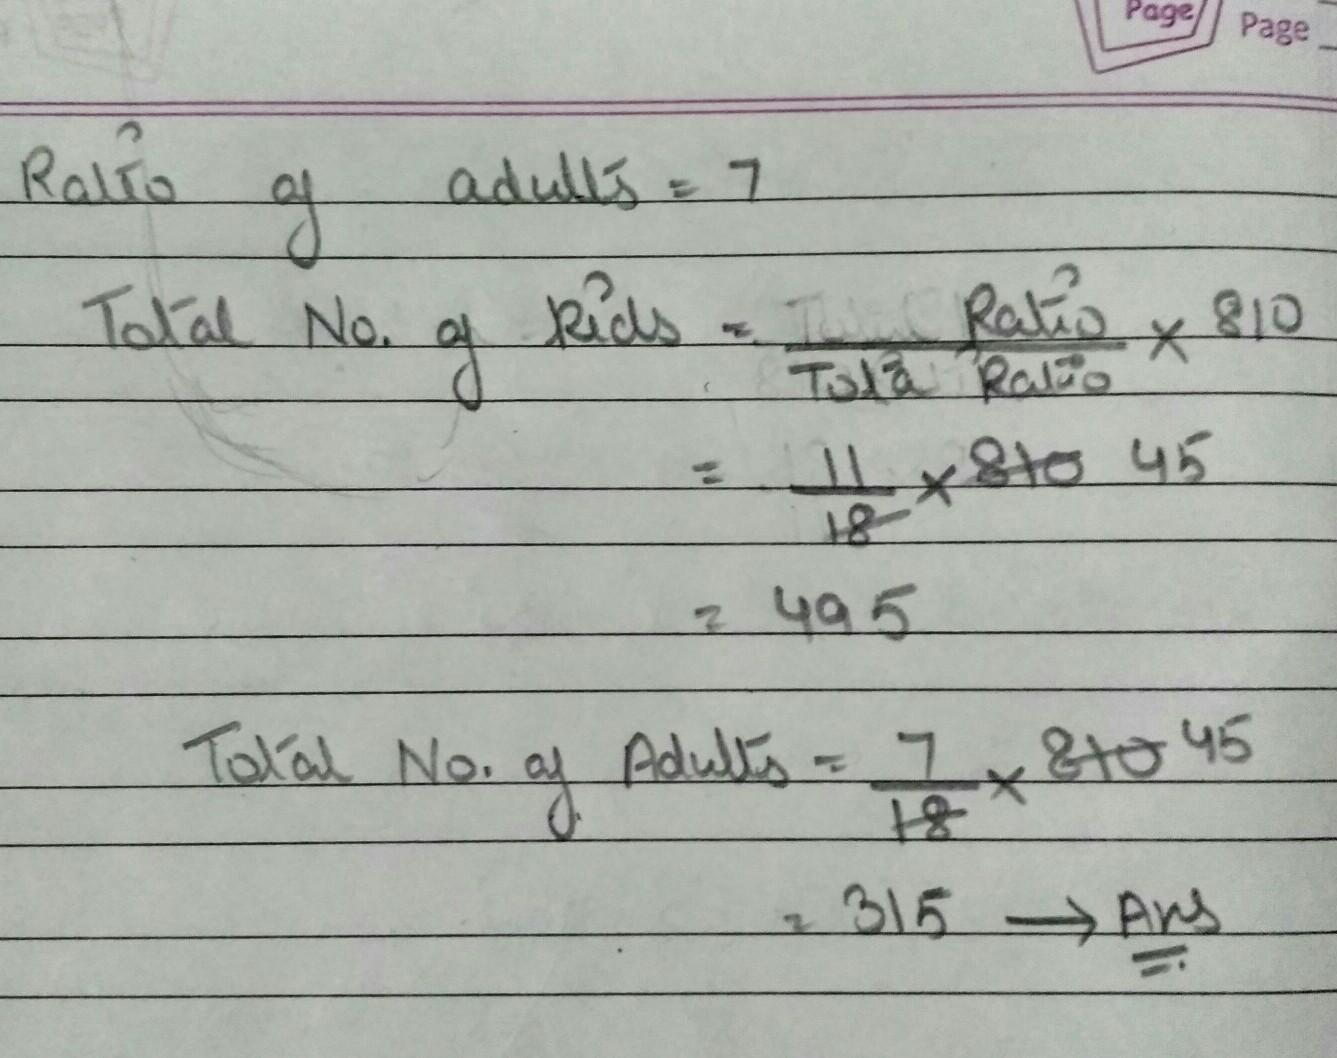 Page Page
Ratio of adults = 7
Total No. of Kids = Ratio / Total Ratio × 810
= 11/18 × 810 45
= 495
Total No. of Adults = 7/18 × 810 45
= 315 → Ans